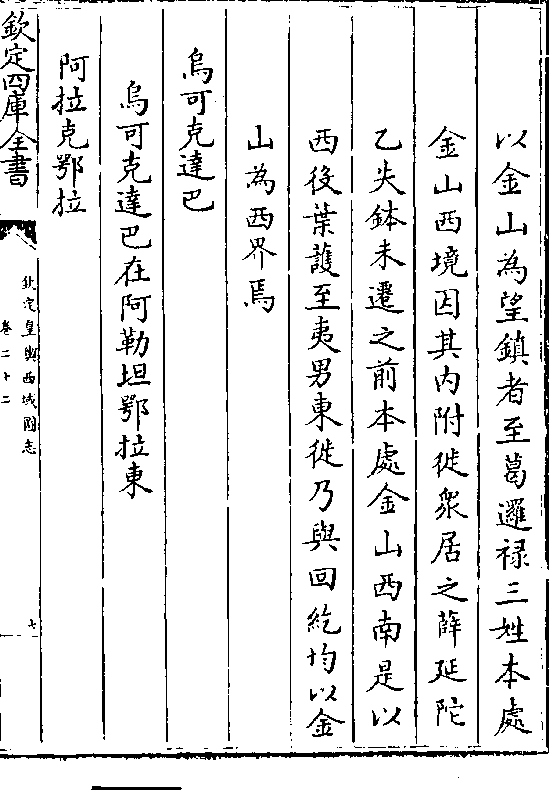 以金山為望鎮者至葛邏禄三姓本處
金山西境因其内附徙衆居之薛延陀
乙失鉢未遷之前本處金山西南是以
西後葉護至夷男東徙乃與回紇均以金
山為西界焉
烏可克達巴
烏可克達巴在阿勒坦鄂拉東
阿拉克鄂拉
欽定四庫全書
欽定皇輿西域圖志
卷二十二
七